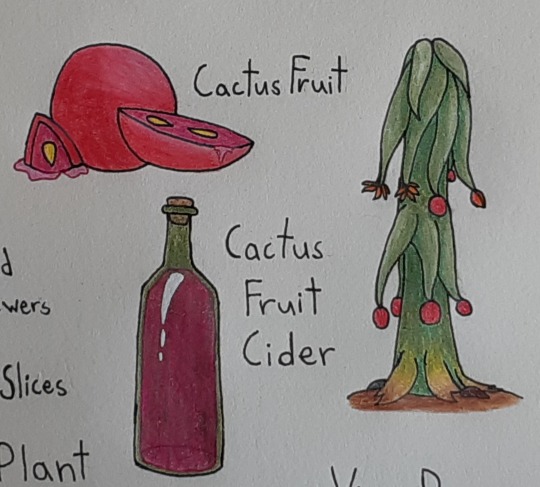 Cactus Fruit
Cactus
Fruit
Cider
d
wers
Slices
Plant